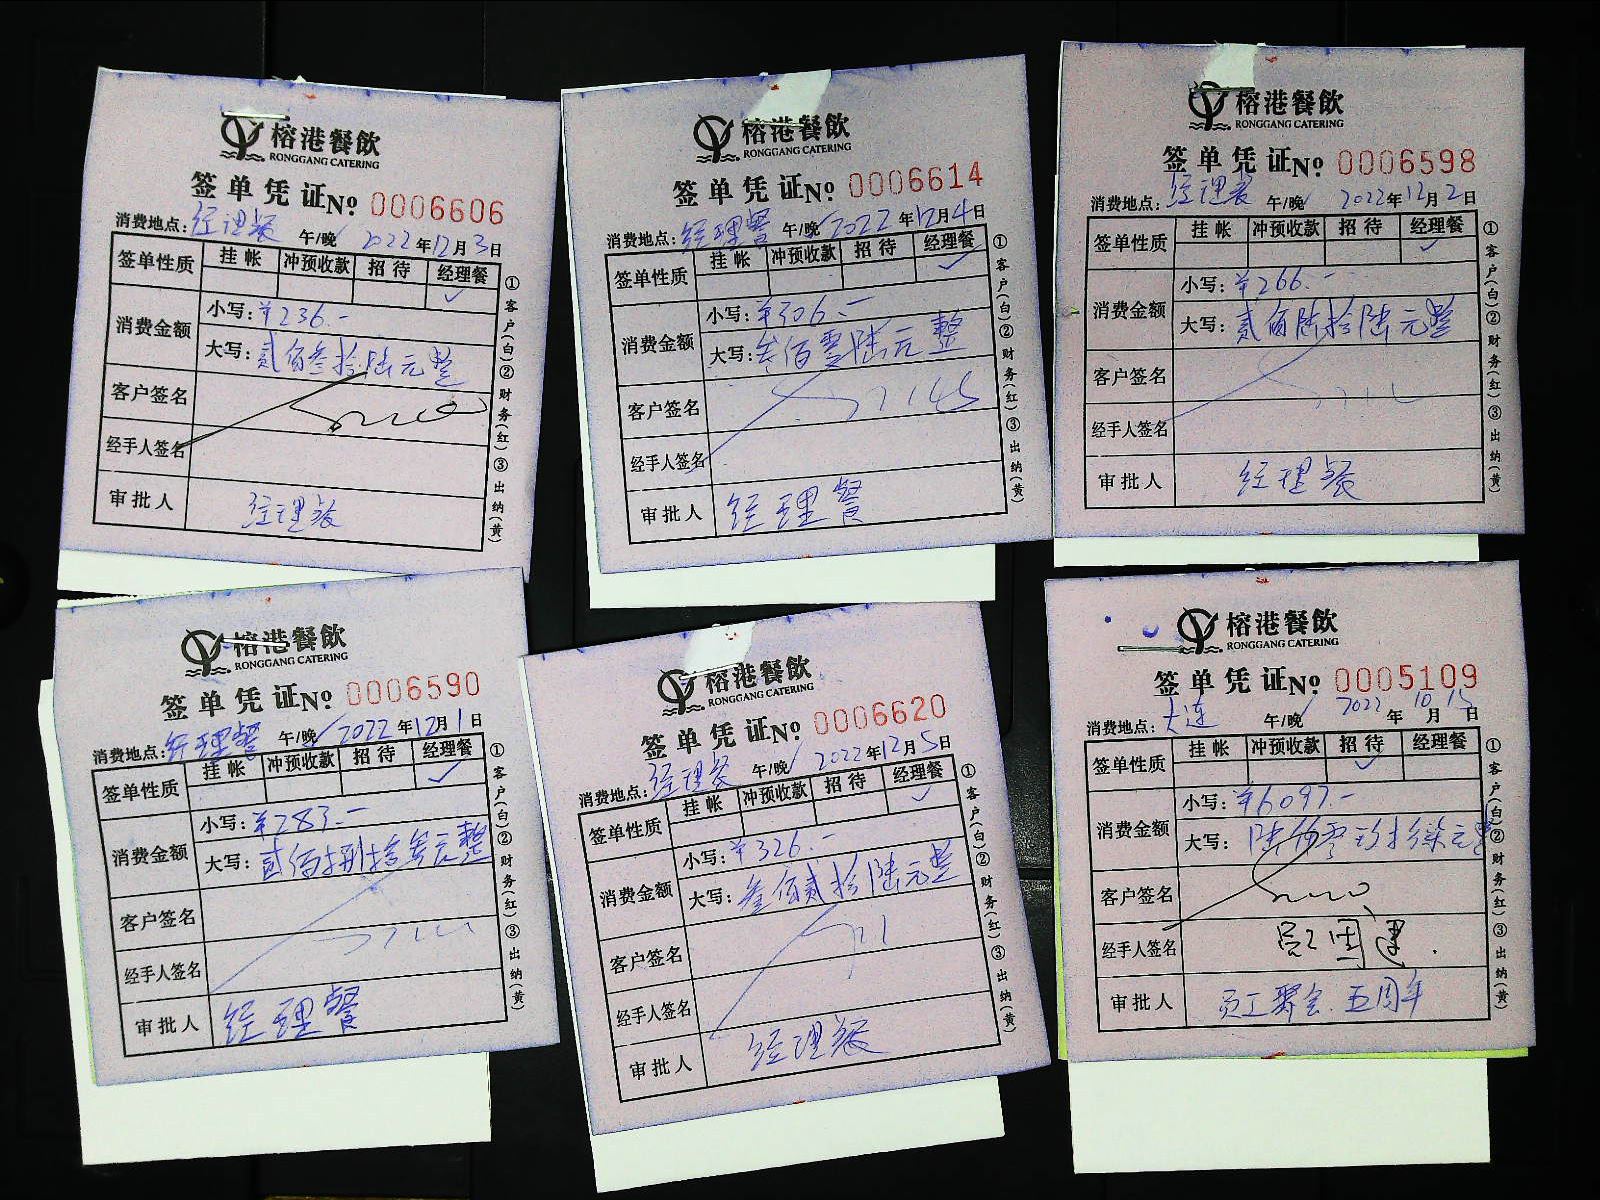 榕港餐飲
RONGGANG CATERING
签单凭证 No 0006606
消费地点: 经理餐 午/晚 2022年12月3日
签单性质 挂帐 冲预收款 招待 经理餐
✓
消费金额 小写: ¥236.-
大写: 贰佰叁拾陆元整
客户签名
经手人签名
审批人 经理餐
①客户(白)②财务(红)③出纳(黄)
榕港餐飲
RONGGANG CATERING
签单凭证 No 0006614
消费地点: 经理餐 午/晚 2022年12月4日
签单性质 挂帐 冲预收款 招待 经理餐
✓
消费金额 小写: ¥306.-
大写: 叁佰零陆元整
客户签名
经手人签名
审批人 经理餐
①客户(白)②财务(红)③出纳(黄)
榕港餐飲
RONGGANG CATERING
签单凭证 No 0006598
消费地点: 经理餐 午/晚 2022年12月2日
签单性质 挂帐 冲预收款 招待 经理餐
✓
消费金额 小写: ¥266.-
大写: 贰佰陆拾陆元整
客户签名
经手人签名
审批人 经理餐
①客户(白)②财务(红)③出纳(黄)
榕港餐飲
RONGGANG CATERING
签单凭证 No 0006590
消费地点: 经理餐 午/晚 2022年12月1日
签单性质 挂帐 冲预收款 招待 经理餐
✓
消费金额 小写: ¥283.-
大写: 贰佰捌拾叁元整
客户签名
经手人签名
审批人 经理餐
①客户(白)②财务(红)③出纳(黄)
榕港餐飲
RONGGANG CATERING
签单凭证 No 0006620
消费地点: 经理餐 午/晚 2022年12月5日
签单性质 挂帐 冲预收款 招待 经理餐
✓
消费金额 小写: ¥326.-
大写: 叁佰贰拾陆元整
客户签名
经手人签名
审批人 经理餐
①客户(白)②财务(红)③出纳(黄)
榕港餐飲
RONGGANG CATERING
签单凭证 No 0005109
消费地点: 大连 午/晚 2022年10月15日
签单性质 挂帐 冲预收款 招待 经理餐
✓
消费金额 小写: ¥6097.-
大写: 陆仟零玖拾柒元整
客户签名
经手人签名
审批人 员工聚会.五周年
①客户(白)②财务(红)③出纳(黄)